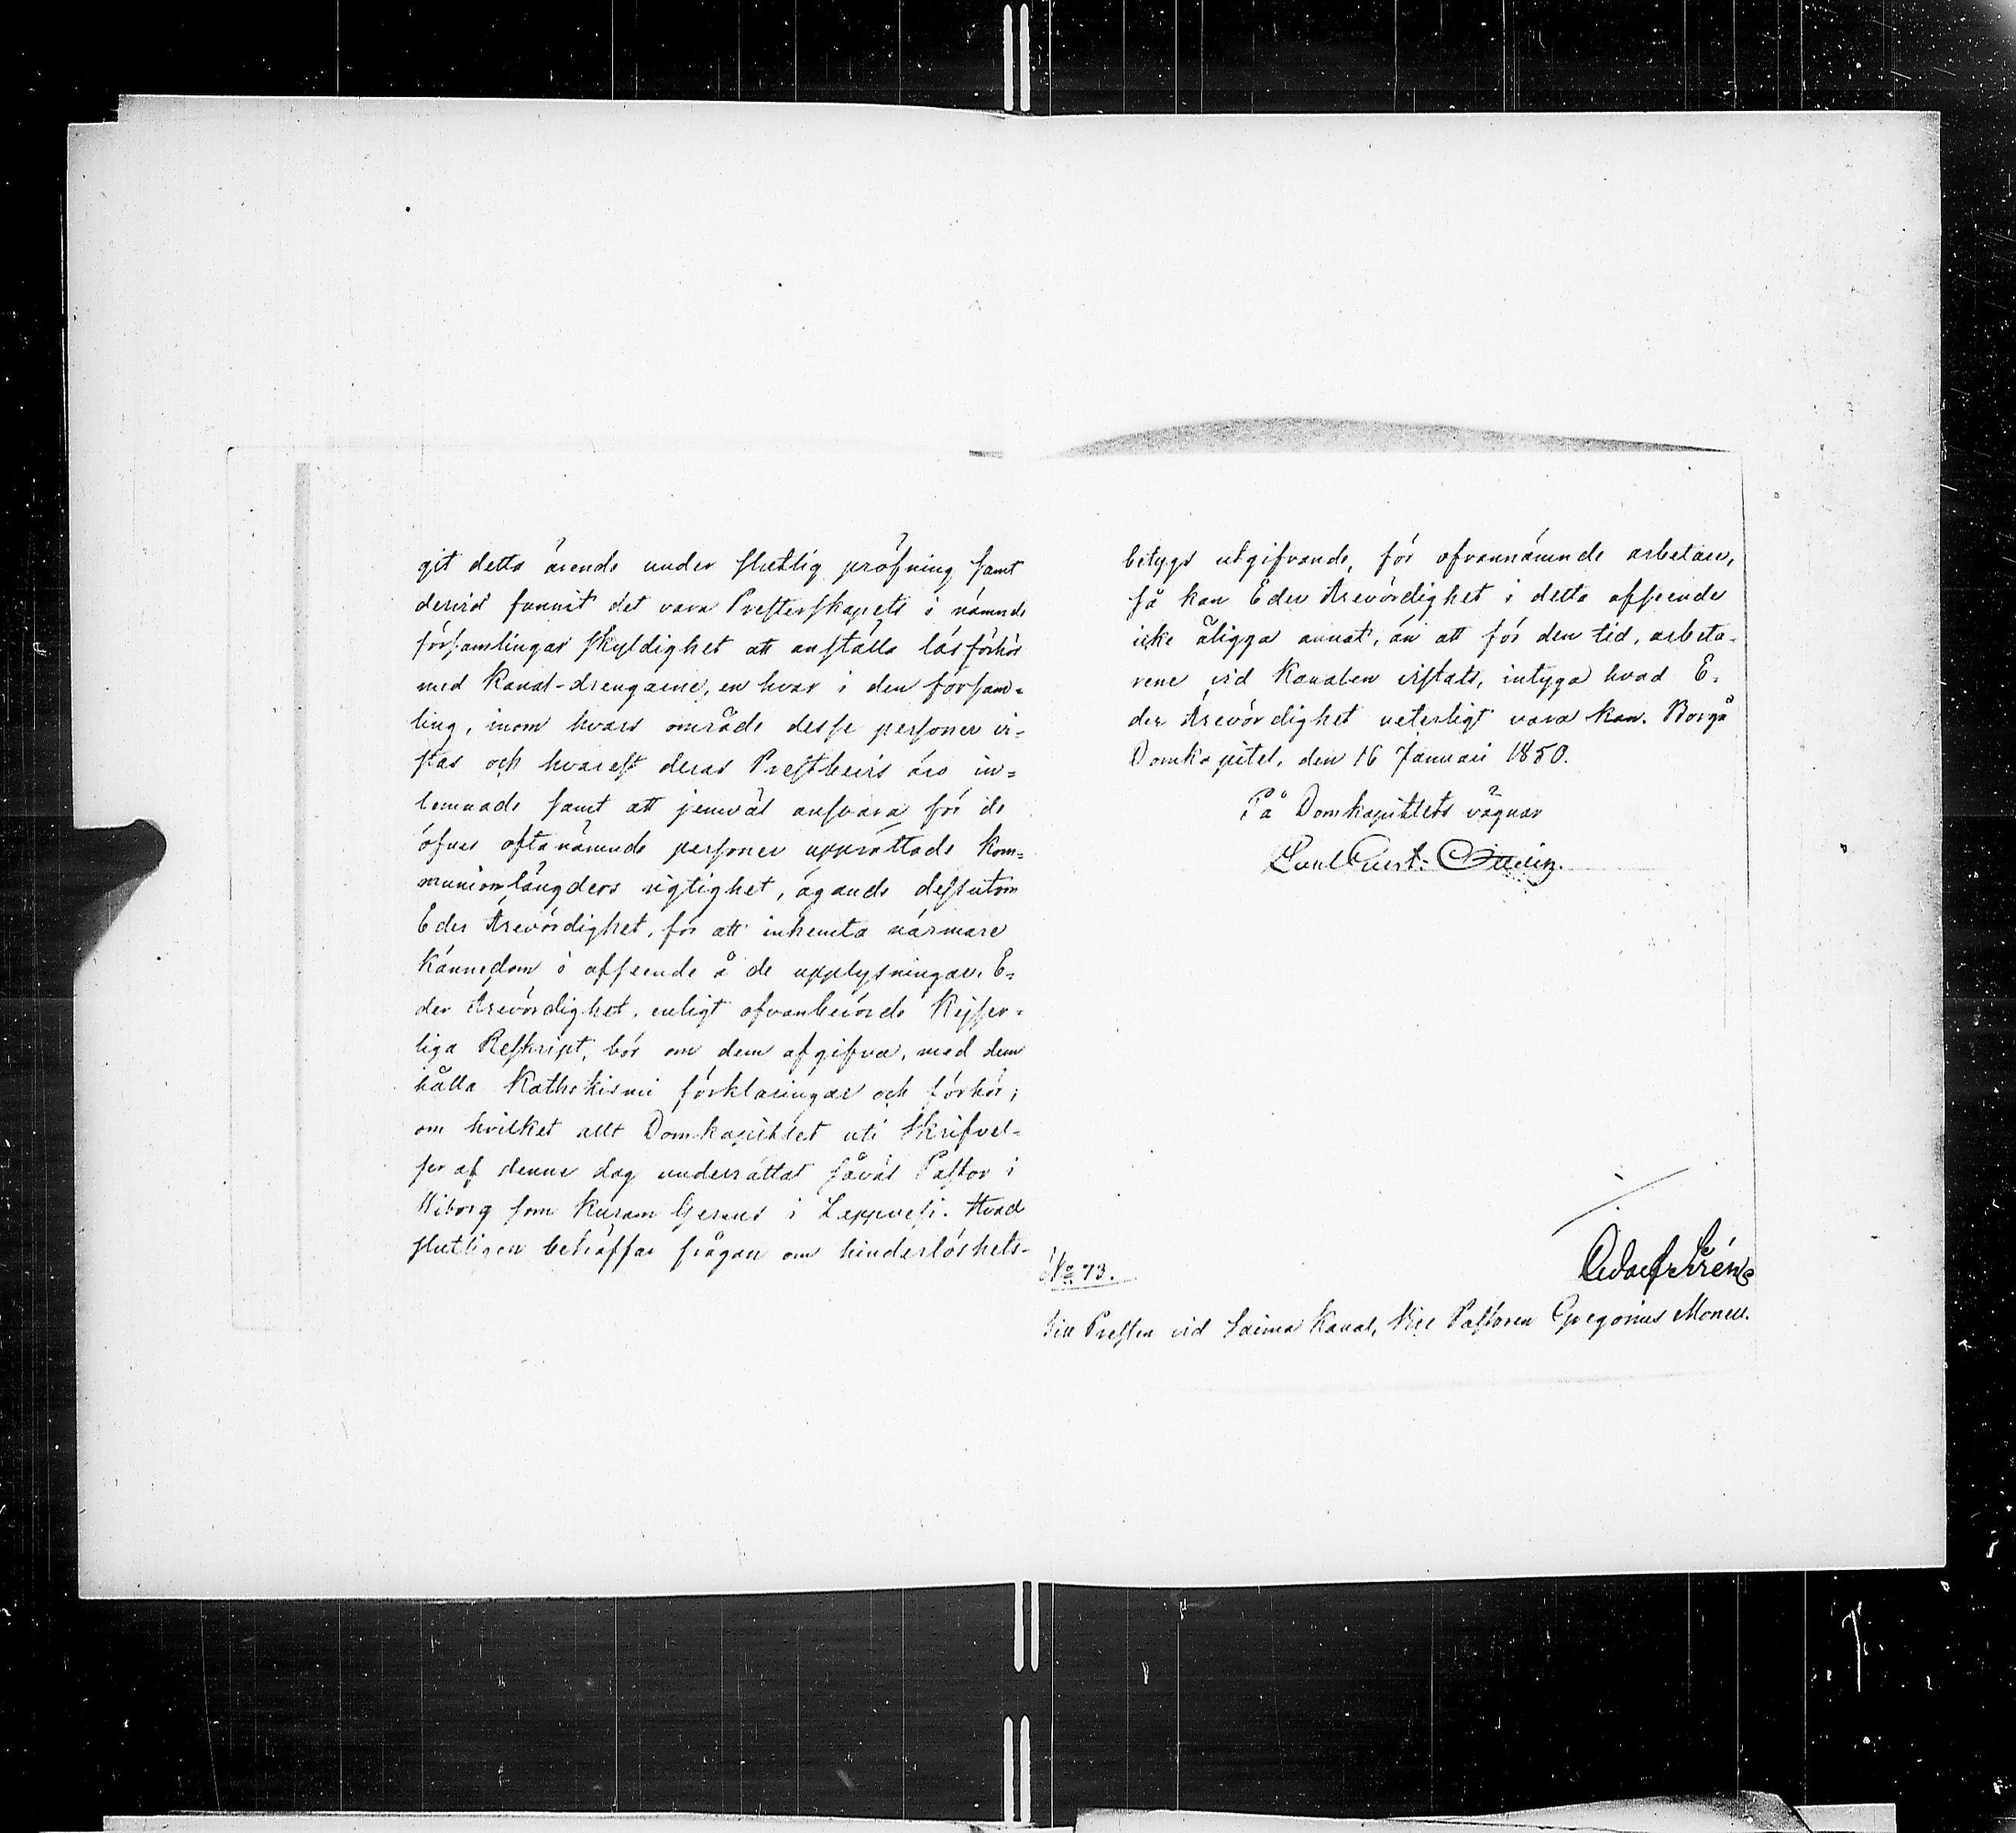 git detta ärende under slutlig pröfning samt
dervid funnit det vara Presterskapets i nämnde
församlingar skyldighet att anställa läsförhör
med Kanal-drengarne, en hvar i den försam-
ling, inom hvars område desse personer vi-
stas och hvarest deras Prestbevis äro in-
lemnade samt att jemväl ansvara för de
öfver oftanämnde personer upprättade Kom-
munionlängders rigtighet, ägande dessutom
Eder Ärevördighet, för att inhemta närmare
kännedom i afseende å de upplysningar, E-
der Ärevördighet, enligt ofvanberörde Kejser-
liga Reskript, bör om dem afgifva, med dem
hålla Kathekismi förklaringar och förhör;
om hvilket allt Domkapitlet uti Skrifvel-
ser af denne dag underrättat såväl Pastor i
Wiborg som Kuram Gerens i Lappvesi. Hvad
slutligen beträffar frågan om hinderlöshets-
betygs utgifvande, för ofvannämnde arbetare,
så kan Eder Ärevördighet i detta afseende
icke åligga annat, än att för den tid, arbeta-
rene vid Kanalen vistats, intyga hvad E-
der Ärevördighet veterligt vara kan. Borgå
Domkapitel, den 16 Januari 1850.
På Domkapitlets vägnar
No 73.
Till Presten vid Saima Kanal, Vice Pastoren Gregorius Monell.